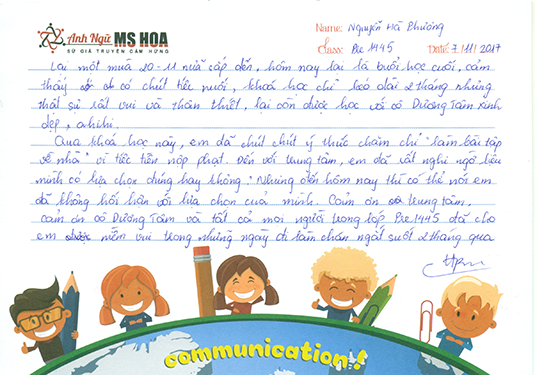 Anh Ngữ MS HOA
SỨ GIẢ TRUYỀN CẢM HỨNG
Name: Nguyễn Hà Phương
Class: Pre 1445 Date: 7/11/2017
Lại một mùa 20-11 nữa sắp đến, hôm nay lại là buổi học cuối, cảm
thấy có chút tiếc nuối, khoá học chỉ kéo dài 2 tháng nhưng
thật sự rất vui và thân thiết, lại còn được học với cô Dương Tâm xinh
đẹp, ahihi.
Qua khoá học này, em đã chút chút ý thức chăm chỉ "làm bài tập
về nhà" vì tiếc tiền nộp phạt. Đến với trung tâm, em đã rất nghi ngờ liệu
mình có lựa chọn đúng hay không. Nhưng đến hôm nay thì có thể nói em
đã không hối hận với lựa chọn của mình. Cảm ơn trung tâm,
cảm ơn cô Dương Tâm và tất cả mọi người trong lớp Pre 1445 đã cho
em niềm vui trong những ngày đi làm chán ngắt suốt 2 tháng qua
communication!